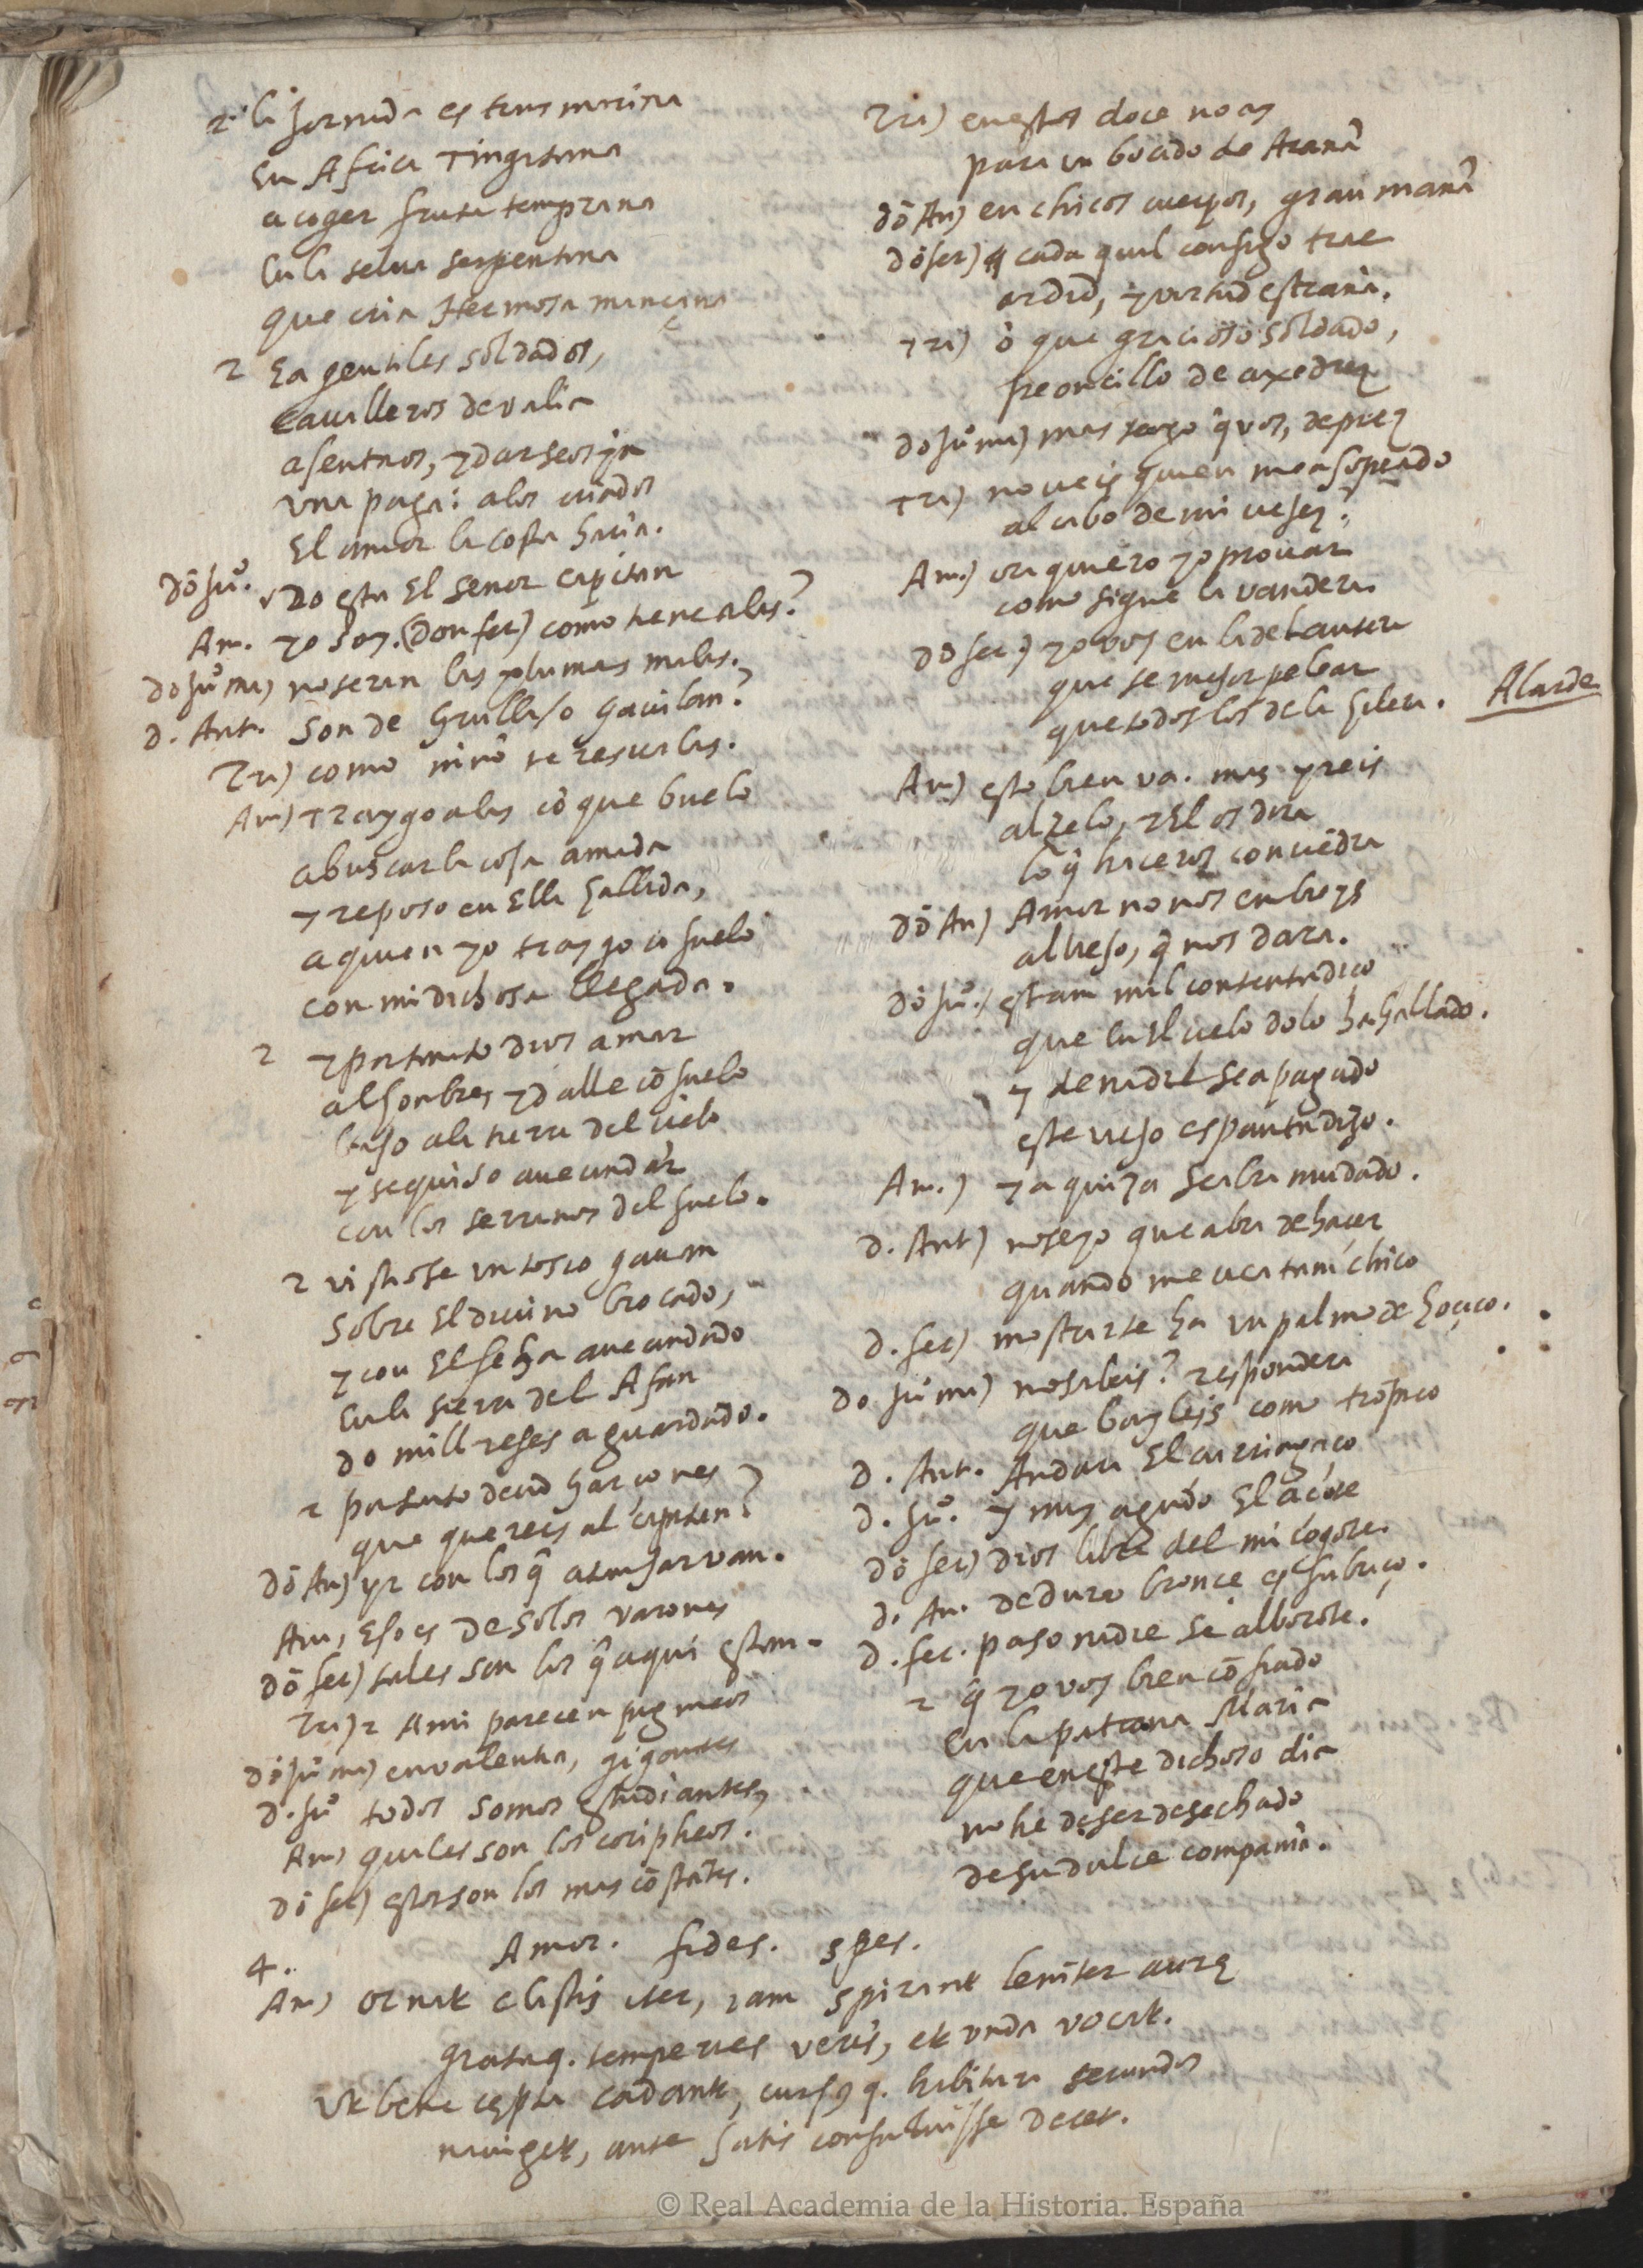 2. la jornada es trasmarina
En Africa Tingitana
a coger fruta temprana
En la selva serpentina
que cria Hermosa mançana
2 Ea gentiles soldados,
cavalleros de valia
asentaos, y darseos ya
una paga: a los criados
El amor la costa haria.
dõ Juº. Do esta El señor capitan
Am. yo soy. (don fer) como tiene alas?
dõ Juº mi) no seran las plumas malas.
d. Ant. Son de Grulla/o gavilan?
Tri) como niño te resvalas.
Am) Traygo alas cõ que buelo
a buscar la cosa amada
y reposo en Ella hallada,
a quien yo traygo cõsuelo
con mi dichosa llegada.
2 y por tanto dios amar
al hombre, y dalle cõsuelo
baxo a la tierra del cielo
y se quiso avecindar
con los serranos del suelo.
2 vistiose un tosco gavan
Sobre El divino brocado,
y con El se ha avecindado
En la sierra del Afan
do mill reses a guardado.
2 por tanto decid harçones
que quereis al capitan?
dõ An) yr con los q̃ atras jarvan.
Am, Eso es de solos varones
dõ fer) tales son los q̃ aqui estan.
Tri) 2 A mi parecen pigmeos
dõ Juº mi) en valentia, gigantes
d. Juº todos somos estudiantes,
Am) quales son los coripheos.
dõ fer) estos son los mas cõstãtes.
Tri) en estos doce no ay
para un bocado de Araña
dõ An) en chicos cuerpos, gran maña
dõ fer) q̃ cada qual consigo trae
ardid, y virtud estraña.
Tri) ô que gracioso soldado,
peoncillo de axedrez
dõ Juº mi) mas tengo q̃ vos, de prez
Tri) no veis quien me a sopeado
al cabo de mi vejez?
Am.) ora quiero yo provar
como sigue la vandera
dõ fer.) yo voy en la delantera
que se mejor pelear
que todos los de la hilera.
Alarde
Am) esto bien va. mas yreis
al zelo, y El os dira
lo q̃ haceros convẽdra
dõ An) Amor no nos embieys
al viejo, q̃ nos dara.
dõ Juº./ esta mil contentadiço
que En El cielo dolo ha hallado.
y de nadie sea pagado
este viejo espantadiço.
Am.) ya quiza se abra mudado.
d. Ant) no se yo que abra de hacer
quando me vea tamchico
d. fer) mostrarse ha un palmo de hoçico.
dõ Juº mi) no sabeis? respondera
que bayleis como tropico
d. Ant. Andara El curriaguço
d. Juº. y mas agudo El açote
dõ fer) Dios libre del mi cogote.
d. An. de duro bronce es fabriço.
d. fer. paso nadie se alborote.
2 q̃ yo voy bien cõfiado
En la patrona Maria
que en este dichoso dia
no he de ser desechado
de su dulce compañia.
4. Amor. fides. spes.
Am) ornat clastis iter, iam spirant leniter auræ
grataq. temperies veris, et unda vocat.
Ut bene cępta cadant, cursusq. habitura secundos
naviget, ante satis consuluisse decet.
© Real Academia de la Historia. España